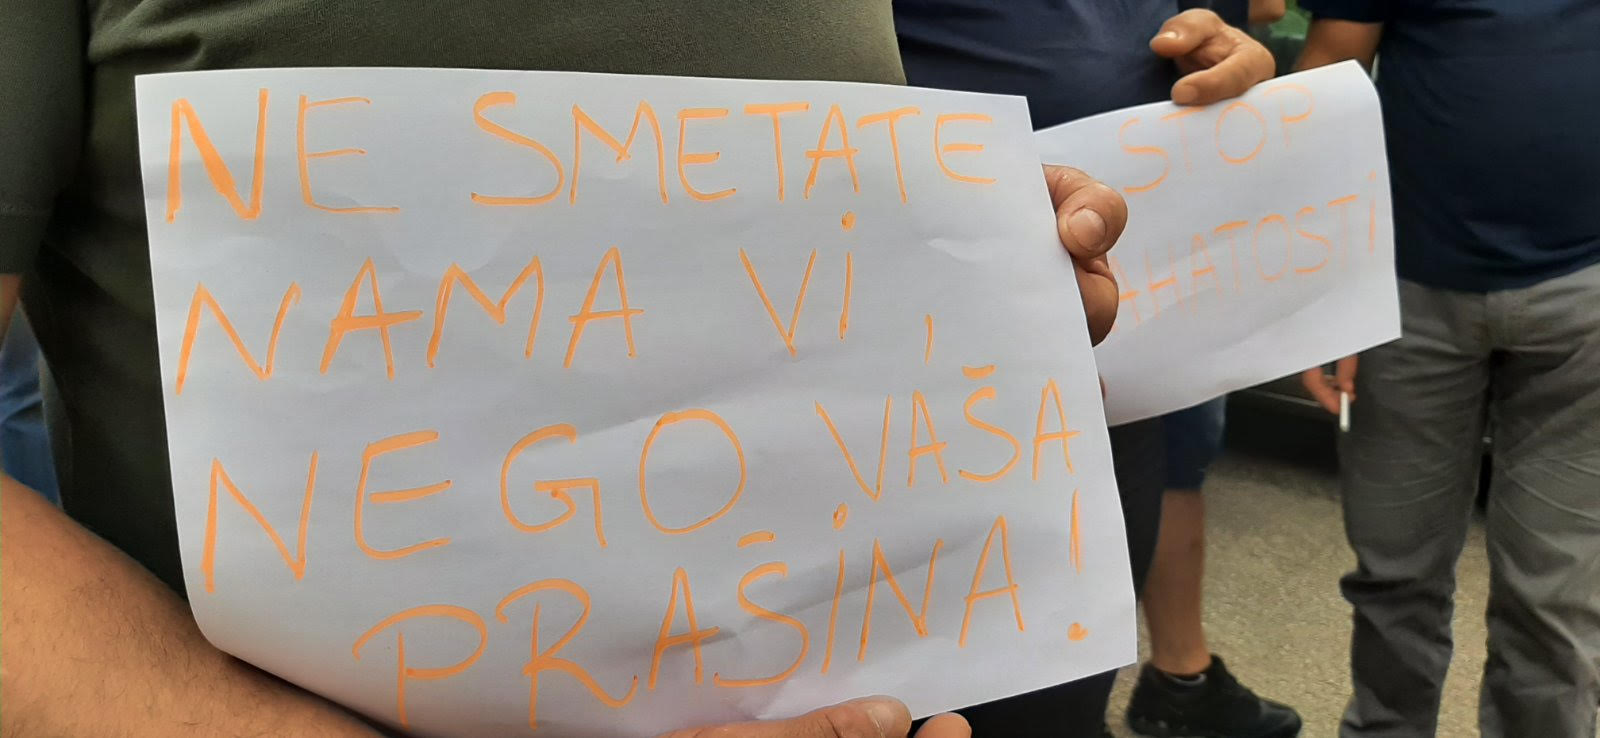 NE SMETATE
NAMA Vi,
NEGO VAŠA
PRAŠiNA!
STOP
AHATOSTi